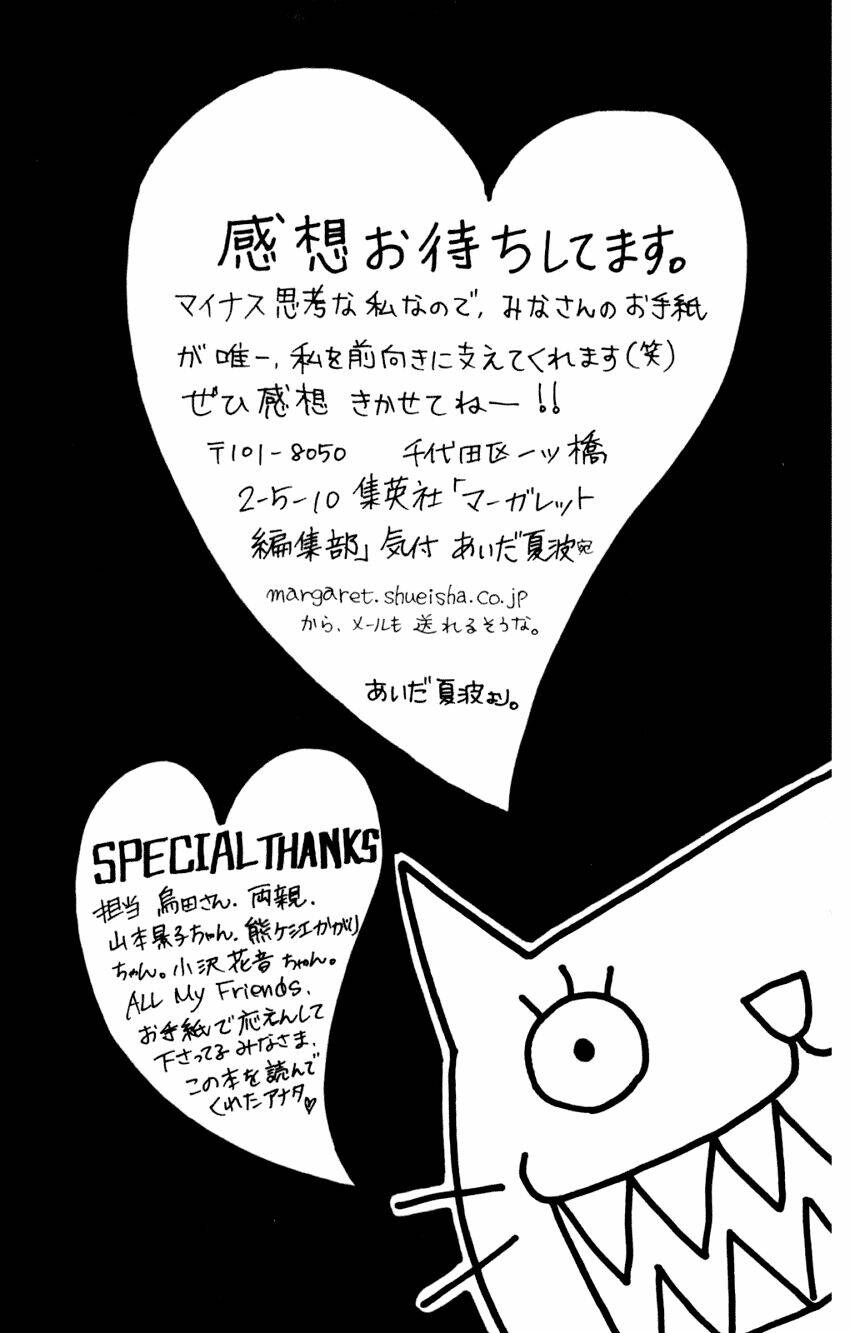 感想お待ちしてます。
マイナス思考な私なので、みなさんのお手紙
が唯一、私を前向きに支えてくれます(笑)
ぜひ感想 きかせてねー!!
〒101-8050 千代田区一ツ橋
2-5-10 集英社「マーガレット
編集部」気付 あいだ夏波宛
margaret.shueisha.co.jp
から、メールも 送れるそうな。
あいだ夏波より。
SPECIAL THANKS
担当 鳥田さん、両親、
山本景子ちゃん、熊ケ江かがり
ちゃん。小沢花音ちゃん。
ALL My Friends、
お手紙で応えんして
下さってる みなさま、
この本を読んで
くれたアナタ♡